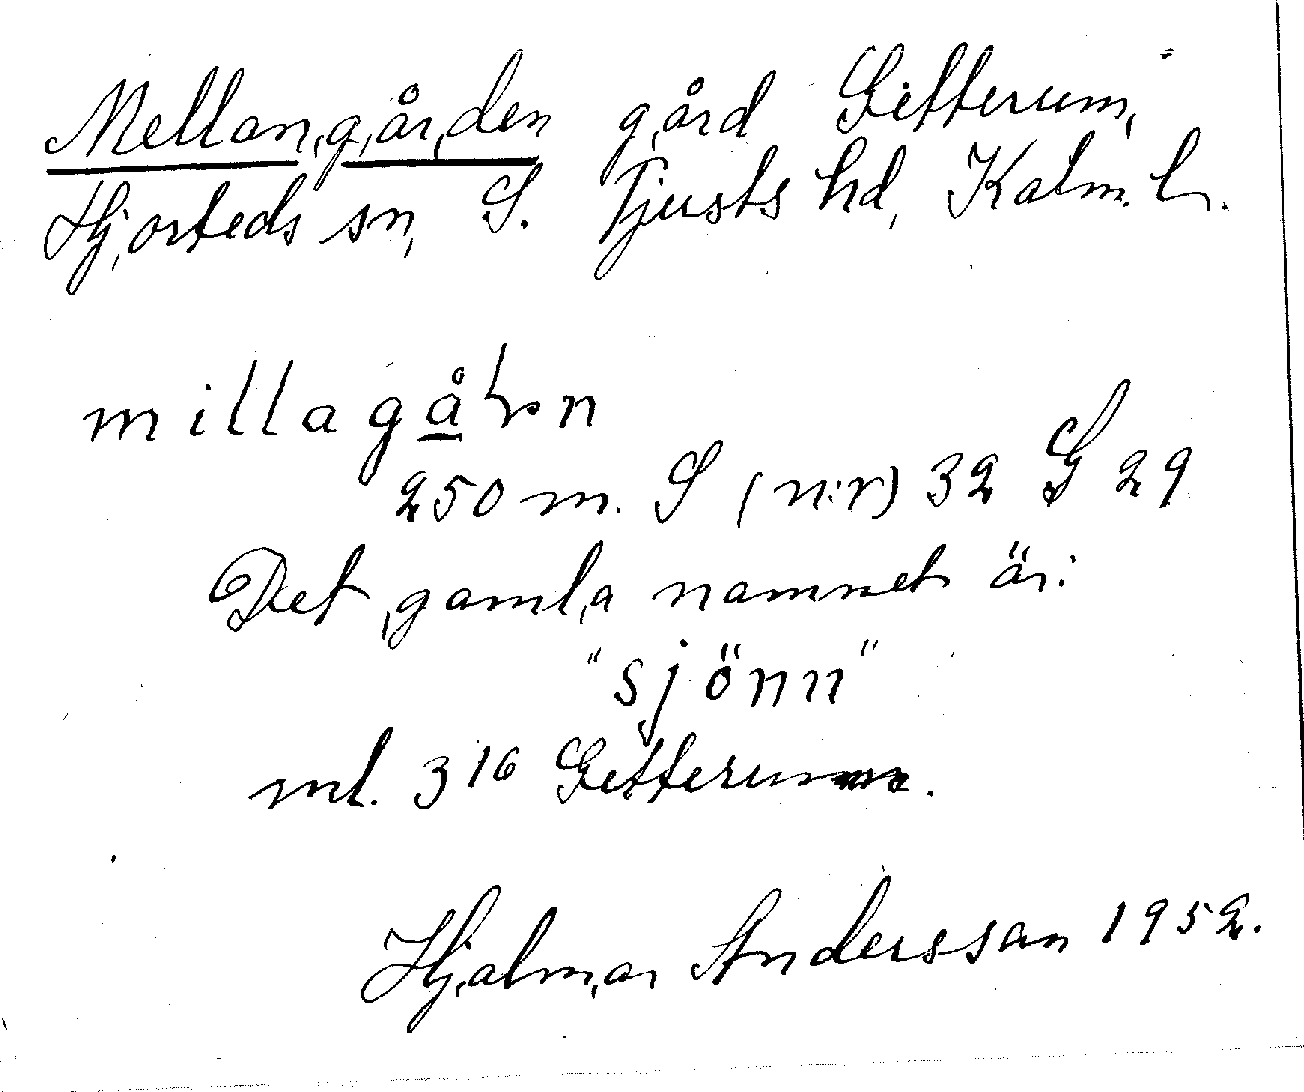 Mellangården gård Gitterum,
Hjorteds sn, S. Tjusts hd, Kalm. l.
millagån
250 m. S (n:r) 32 G 29
Det gamla namnet är:
"sjönn"
ml. 316 Getterum.
Hjalmar Andersson 1952.